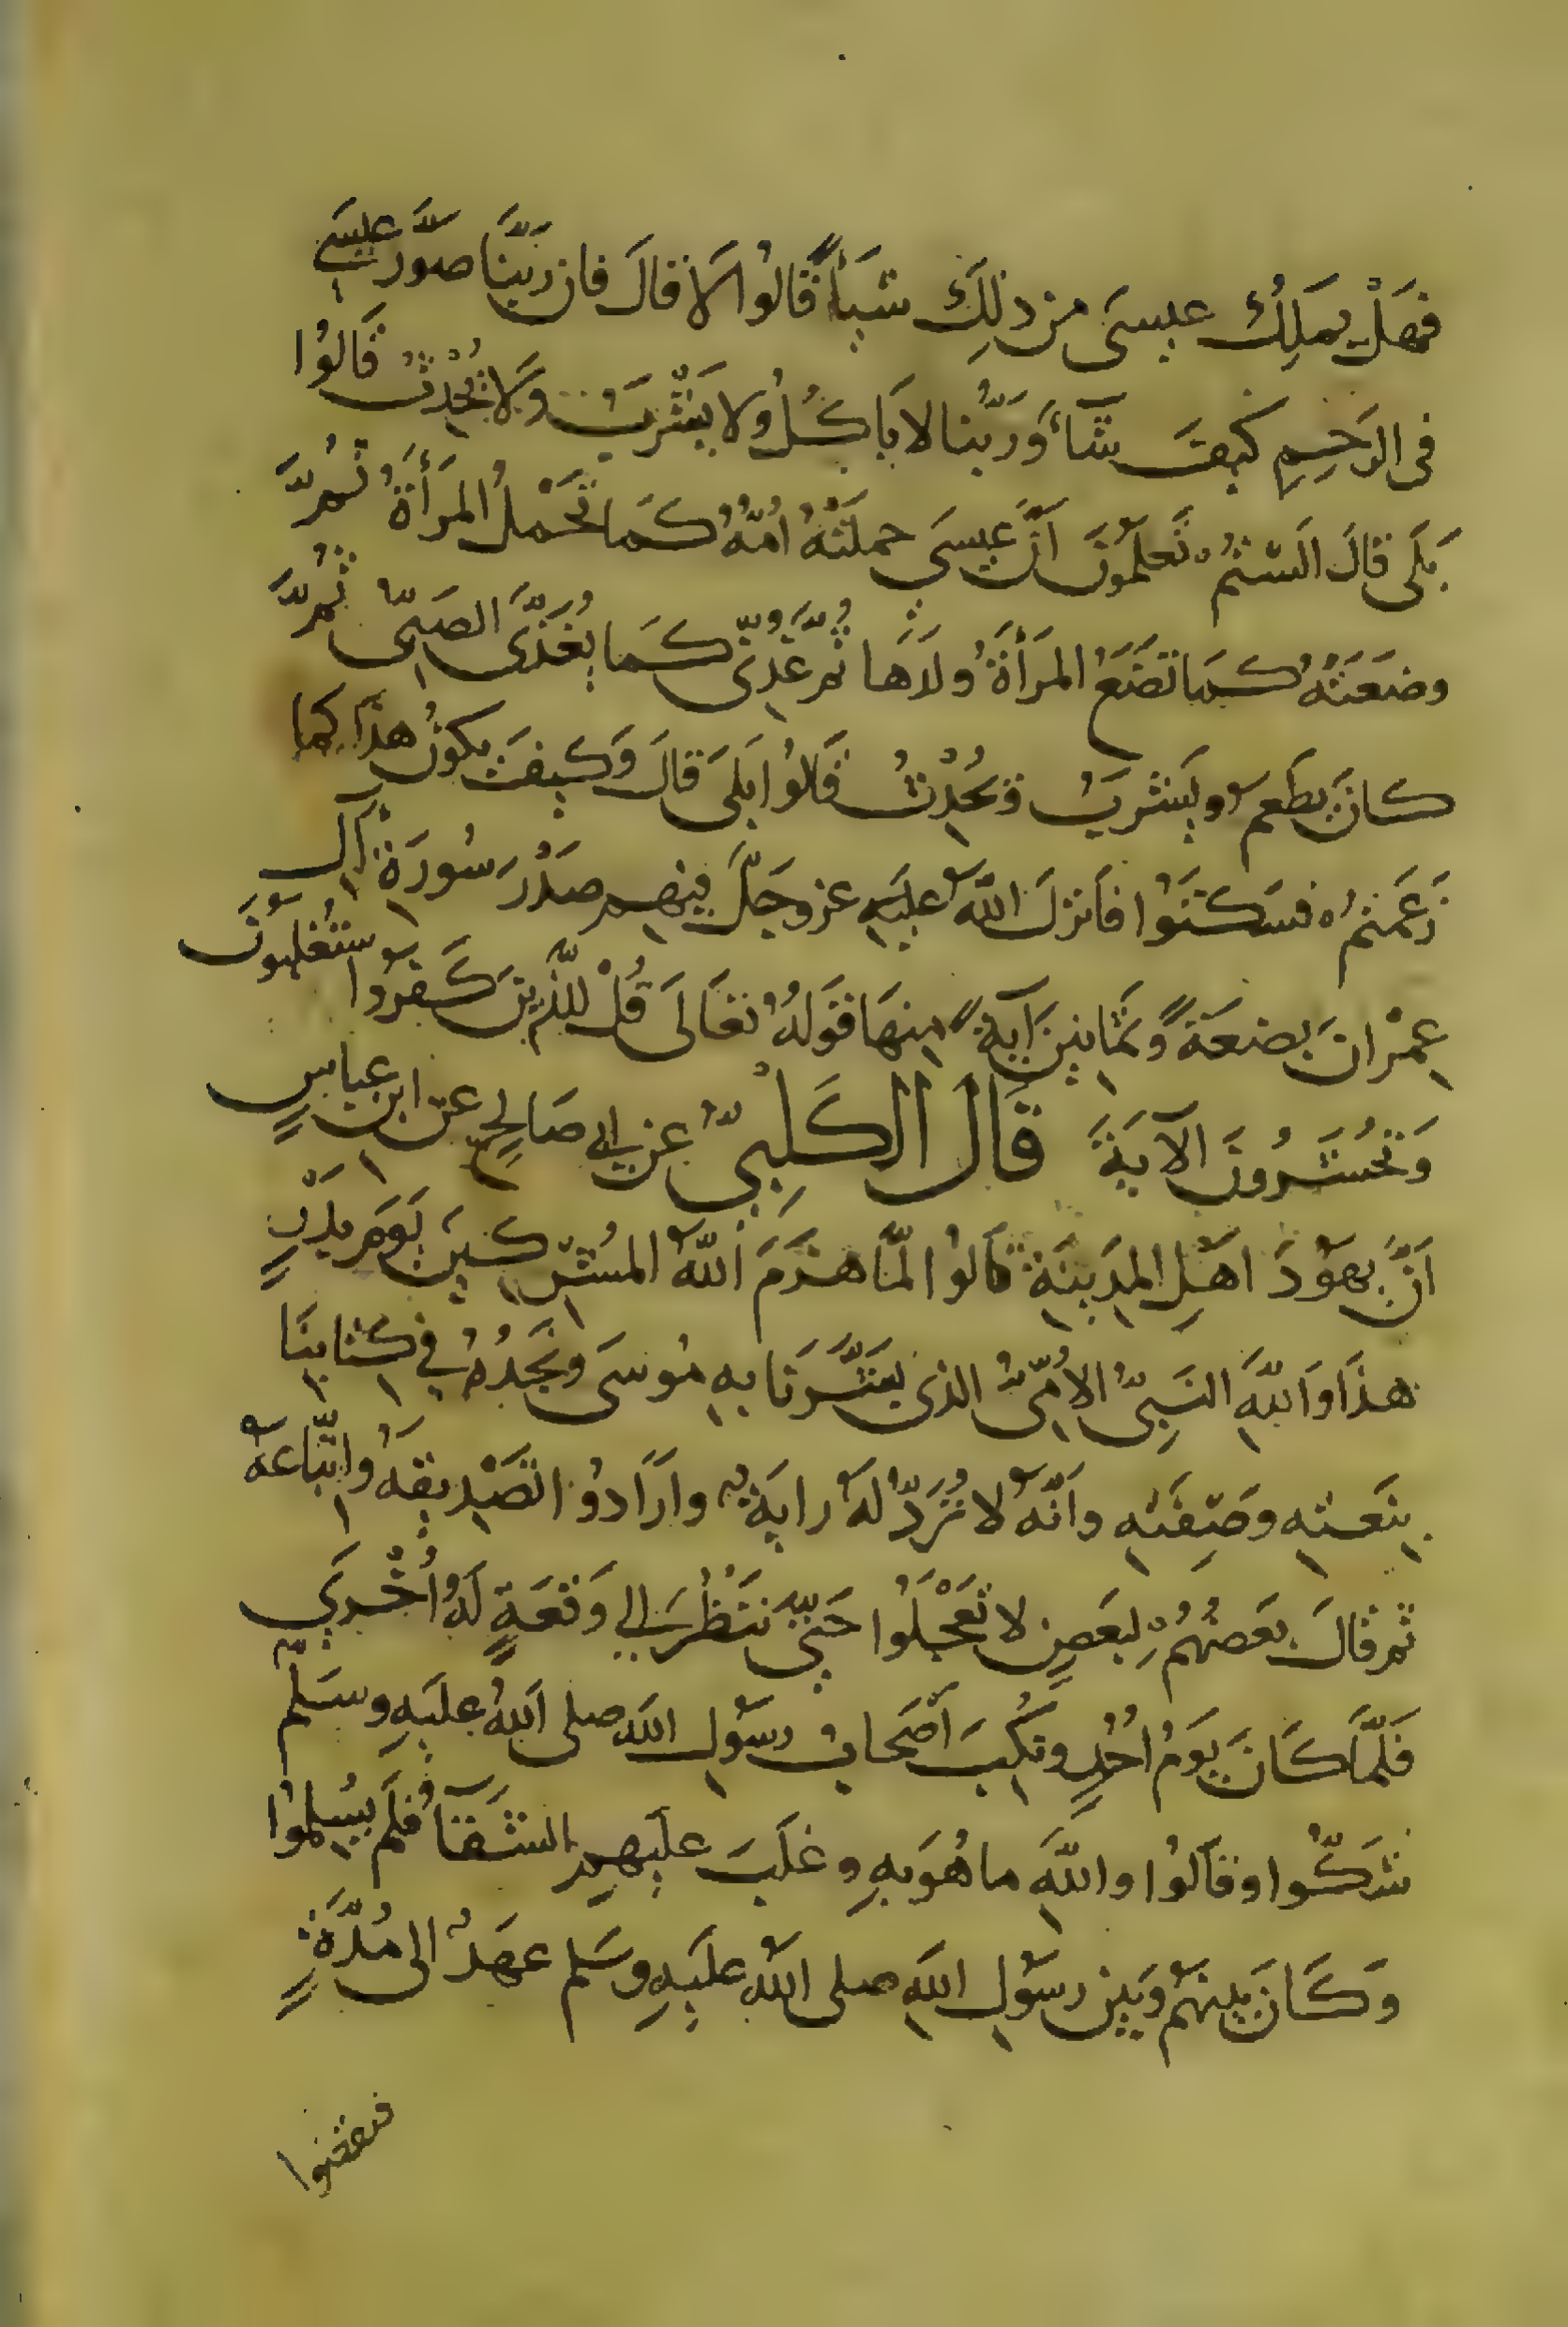 فَهَلْ يَملِكُ عيسَى من ذلِكَ شيأً قَالُوا لا قالَ فان ربَّنَا صوَّرَ عيسَى
فى الرَحِمِ كيفَ شآءَ وَرَبُّنا لا يَاكُلُ ولا يَشْرَبُ وَلَا يُحْدِثُ قَالُوا
بَلَى قالَ الَستُمْ تَعلَمُونَ اَنَّ عِيسَى حملَتْهُ اُمُّهُ كَما تَحْمِلُ المَرأَةُ ثُمَّ
وضَعَتْهُ كما تَضَعُ المَرأَةُ ولَدَهَا ثُمَّ غُذِّىَ كَما يُغَذَّى الصَبِىُّ ثُمَّ
كانَ يَطعَم ويَشرَبُ وَيُحْدِثُ قَالُوا بَلَى قالَ وَكَيفَ يكونُ هذَا كما
زَعَمتُمْ فسَكَتَوُا فاَنزلَ اللّهُ عليَهِ عز وجَلَّ فيهِم صَدْرَ سُورَةِ آلِ
عِمْرانَ بِضعَةً وثَمَانِينَ آيَةً مِنهَا قَولُهُ تعَالَى قُلْ للَّذِينَ كَفرُوا ستُغلَبونَ
وَتُحْشَرُونَ الآيَةَ قَالَ الكَلبِىُّ عن ابى صَالِحٍ عن ابن عباسٍ
اَنَّ يهُودَ اهلِ المدِينَةِ قَالُوا لمّا هَزَمَ اللّهُ المُشرِكينَ يَومَ بَدْرٍ
هذَا وَاللّهِ النَبِىُّ الاُمِّىُّ الذى بَشَّرَنَا بهِ مُوسَى ونَجَدُهُ في كتابِنَا
بِنَعتِهِ وصَفَتِهِ واَنَّهُ لا تُرَدُّ لهُ رايَةٌ وارَادُوا تَصَدِيقَهُ واتِّباعَهُ
ثم قالَ بَعضُهُمْ لبَعضٍ لا تَعْجَلُوا حَتَّى نَنْظُرَ الى وَقعَةٍ لَهُ اُخْرَى
فَلَمَّا كَانَ يَومُ اُحُدٍ ونُكِبَ اَصحَابُ رسَوُلِ اللَّهِ صلى اللهُ عليَهِ وسَلَّم
شَكُّوا وقالوُا واللَّهِ ما هُوَ بِهِ وغلَبَ عليَهِم الشَقآُ فلَم يُسْلِموُا
وَكَانَ بَينَهُم وبَين رسَوُلِ اللَّهِ صلى اللّهُ عليَهِ وسَلم عهدٌ الى مُدَّةٍ
فنقضوا